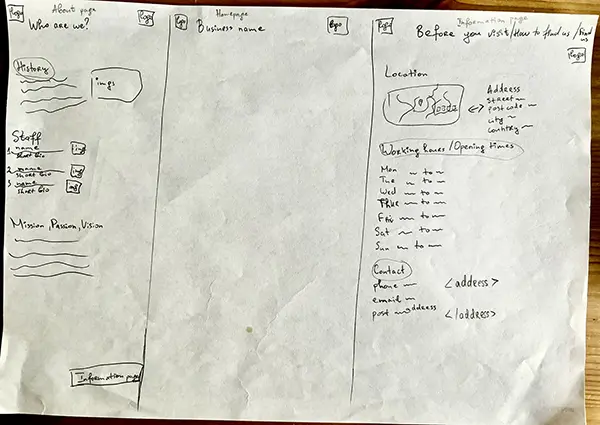 About page
Logo
Logo
Who are we?
History
imgs
Staff
1. name
short bio
img
2. name
short bio
img
3 name
short bio
img
Mission, Passion, Vision
Information page
Homepage
Logo
Logo
Business name
Information page
Logo
Before you visit/How to find us /Find
us
Logo
Location
Address
street
postcode
city
country
Working hours/Opening times
Mon to
Tue to
Wed to
Thur to
Fri to
Sat to
Sun to
Contact
phone
email
post address
<address>
</address>